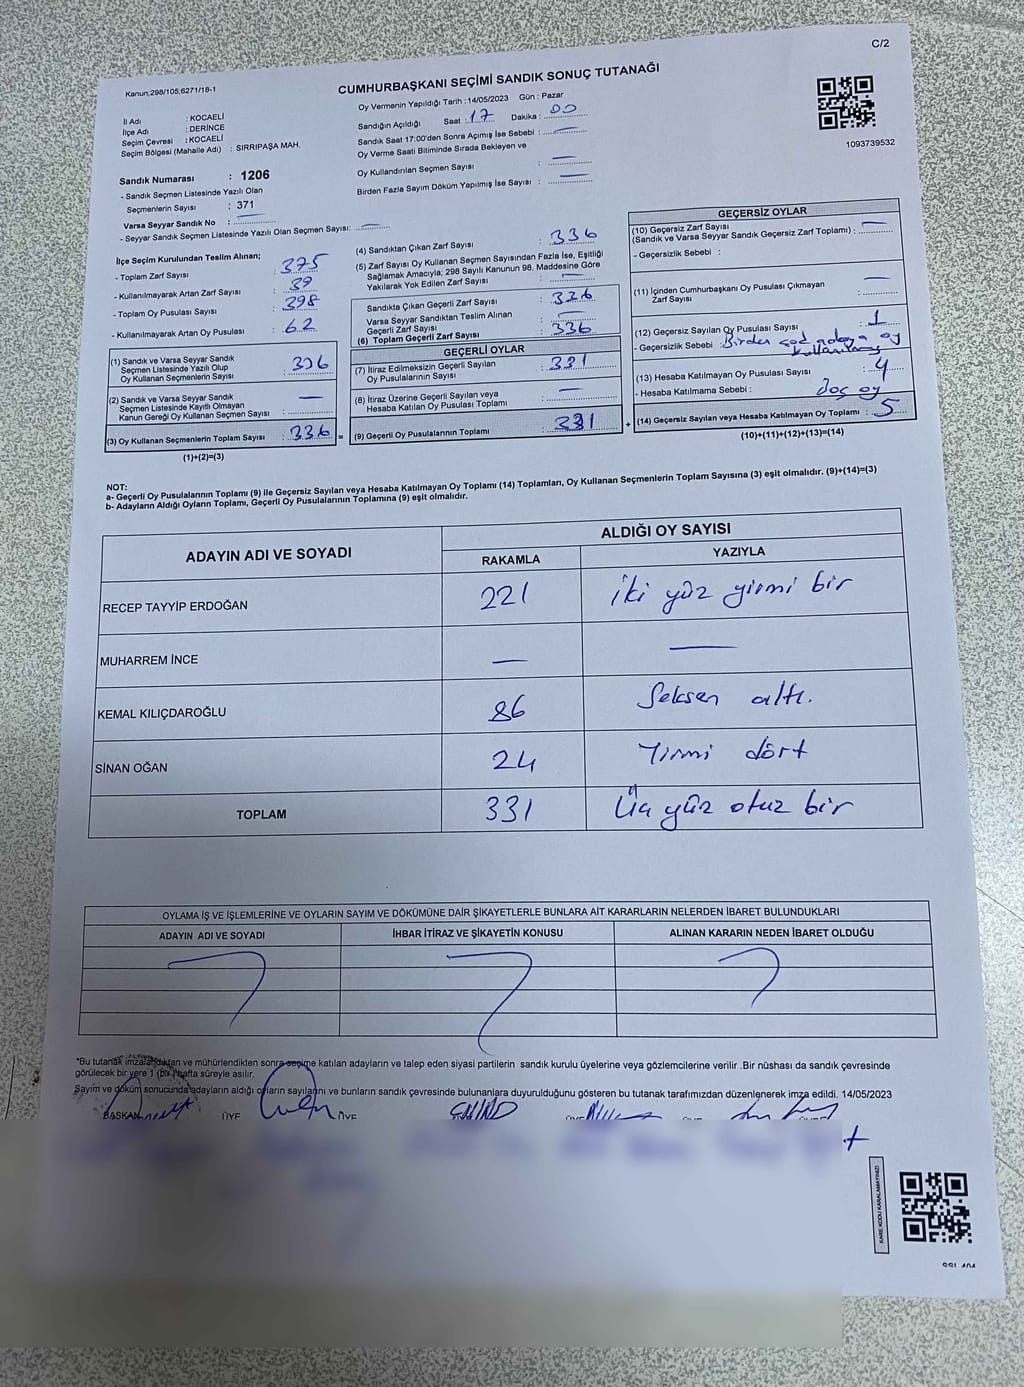 C/2
Kanun:298/105;6271/18-1
CUMHURBAŞKANI SEÇİMİ SANDIK SONUÇ TUTANAĞI
Oy Vermenin Yapıldığı Tarih : 14/05/2023 Gün : Pazar
İl Adı : KOCAELİ
İlçe Adı : DERİNCE
Seçim Çevresi : KOCAELİ
Seçim Bölgesi (Mahalle Adı) : SIRRIPAŞA MAH.
Sandığın Açıldığı Saat : 17 Dakika : 00
Sandık Saat 17:00'den Sonra Açımış İse Sebebi : —
Oy Verme Saati Bitiminde Sırada Bekleyen ve
Oy Kullandırılan Seçmen Sayısı : —
Birden Fazla Sayım Döküm Yapılmış İse Sayısı : —
1093739532
Sandık Numarası : 1206
- Sandık Seçmen Listesinde Yazılı Olan
Seçmenlerin Sayısı : 371
Varsa Seyyar Sandık No : —
- Seyyar Sandık Seçmen Listesinde Yazılı Olan Seçmen Sayısı: —
İlçe Seçim Kurulundan Teslim Alınan;
- Toplam Zarf Sayısı : 375
- Kullanılmayarak Artan Zarf Sayısı : 39
- Toplam Oy Pusulası Sayısı : 398
- Kullanılmayarak Artan Oy Pusulası : 62
(1) Sandık ve Varsa Seyyar Sandık
Seçmen Listesinde Yazılı Olup
Oy Kullanan Seçmenlerin Sayısı : 336
(2) Sandık ve Varsa Seyyar Sandık
Seçmen Listesinde Kayıtlı Olmayan
Kanun Gereği Oy Kullanan Seçmen Sayısı : —
(3) Oy Kullanan Seçmenlerin Toplam Sayısı : 336 =
(1)+(2)=(3)
(4) Sandıktan Çıkan Zarf Sayısı : 336
(5) Zarf Sayısı Oy Kullanan Seçmen Sayısından Fazla İse, Eşitliği
Sağlamak Amacıyla; 298 Sayılı Kanunun 98. Maddesine Göre
Yakılarak Yok Edilen Zarf Sayısı : —
Sandıkta Çıkan Geçerli Zarf Sayısı : 336
Varsa Seyyar Sandıktan Teslim Alınan
Geçerli Zarf Sayısı : —
(6) Toplam Geçerli Zarf Sayısı : 336
GEÇERLİ OYLAR
(7) İtiraz Edilmeksizin Geçerli Sayılan
Oy Pusulalarının Sayısı : 331
(8) İtiraz Üzerine Geçerli Sayılan veya
Hesaba Katılan Oy Pusulası Toplamı : —
(9) Geçerli Oy Pusulalarının Toplamı : 331 +
GEÇERSİZ OYLAR
(10) Geçersiz Zarf Sayısı
(Sandık ve Varsa Seyyar Sandık Geçersiz Zarf Toplamı) : —
- Geçersizlik Sebebi :
(11) İçinden Cumhurbaşkanı Oy Pusulası Çıkmayan
Zarf Sayısı : —
(12) Geçersiz Sayılan Oy Pusulası Sayısı : 1
- Geçersizlik Sebebi : Birden çok adaya oy
kullanılmış
(13) Hesaba Katılmayan Oy Pusulası Sayısı : 4
- Hesaba Katılmama Sebebi : boş oy
(14) Geçersiz Sayılan veya Hesaba Katılmayan Oy Toplamı : 5
(10)+(11)+(12)+(13)=(14)
NOT:
a- Geçerli Oy Pusulalarının Toplamı (9) ile Geçersiz Sayılan veya Hesaba Katılmayan Oy Toplamı (14) Toplamları, Oy Kullanan Seçmenlerin Toplam Sayısına (3) eşit olmalıdır. (9)+(14)=(3)
b- Adayların Aldığı Oyların Toplamı, Geçerli Oy Pusulalarının Toplamına (9) eşit olmalıdır.
ADAYIN ADI VE SOYADI
ALDIĞI OY SAYISI
RAKAMLA YAZIYLA
RECEP TAYYİP ERDOĞAN 221 İki yüz yirmi bir
MUHARREM İNCE — —
KEMAL KILIÇDAROĞLU 86 Seksen altı.
SİNAN OĞAN 24 Yirmi dört
TOPLAM 331 Üç yüz otuz bir
OYLAMA İŞ VE İŞLEMLERİNE VE OYLARIN SAYIM VE DÖKÜMÜNE DAİR ŞİKAYETLERLE BUNLARA AİT KARARLARIN NELERDEN İBARET BULUNDUKLARI
ADAYIN ADI VE SOYADI İHBAR İTİRAZ VE ŞİKAYETİN KONUSU ALINAN KARARIN NEDEN İBARET OLDUĞU
*Bu tutanak imzalandıktan ve mühürlendikten sonra seçime katılan adayların ve talep eden siyasi partilerin sandık kurulu üyelerine veya gözlemcilerine verilir .Bir nüshası da sandık çevresinde
görülecek bir yere 1 (bir) hafta süreyle asılır.
Sayım ve döküm sonucunda adayların aldığı oyların sayılarını ve bunların sandık çevresinde bulunanlara duyurulduğunu gösteren bu tutanak tarafımızdan düzenlenerek imza edildi. 14/05/2023
BAŞKAN ÜYE ÜYE
KARE KODU KARALAMAYINIZ!